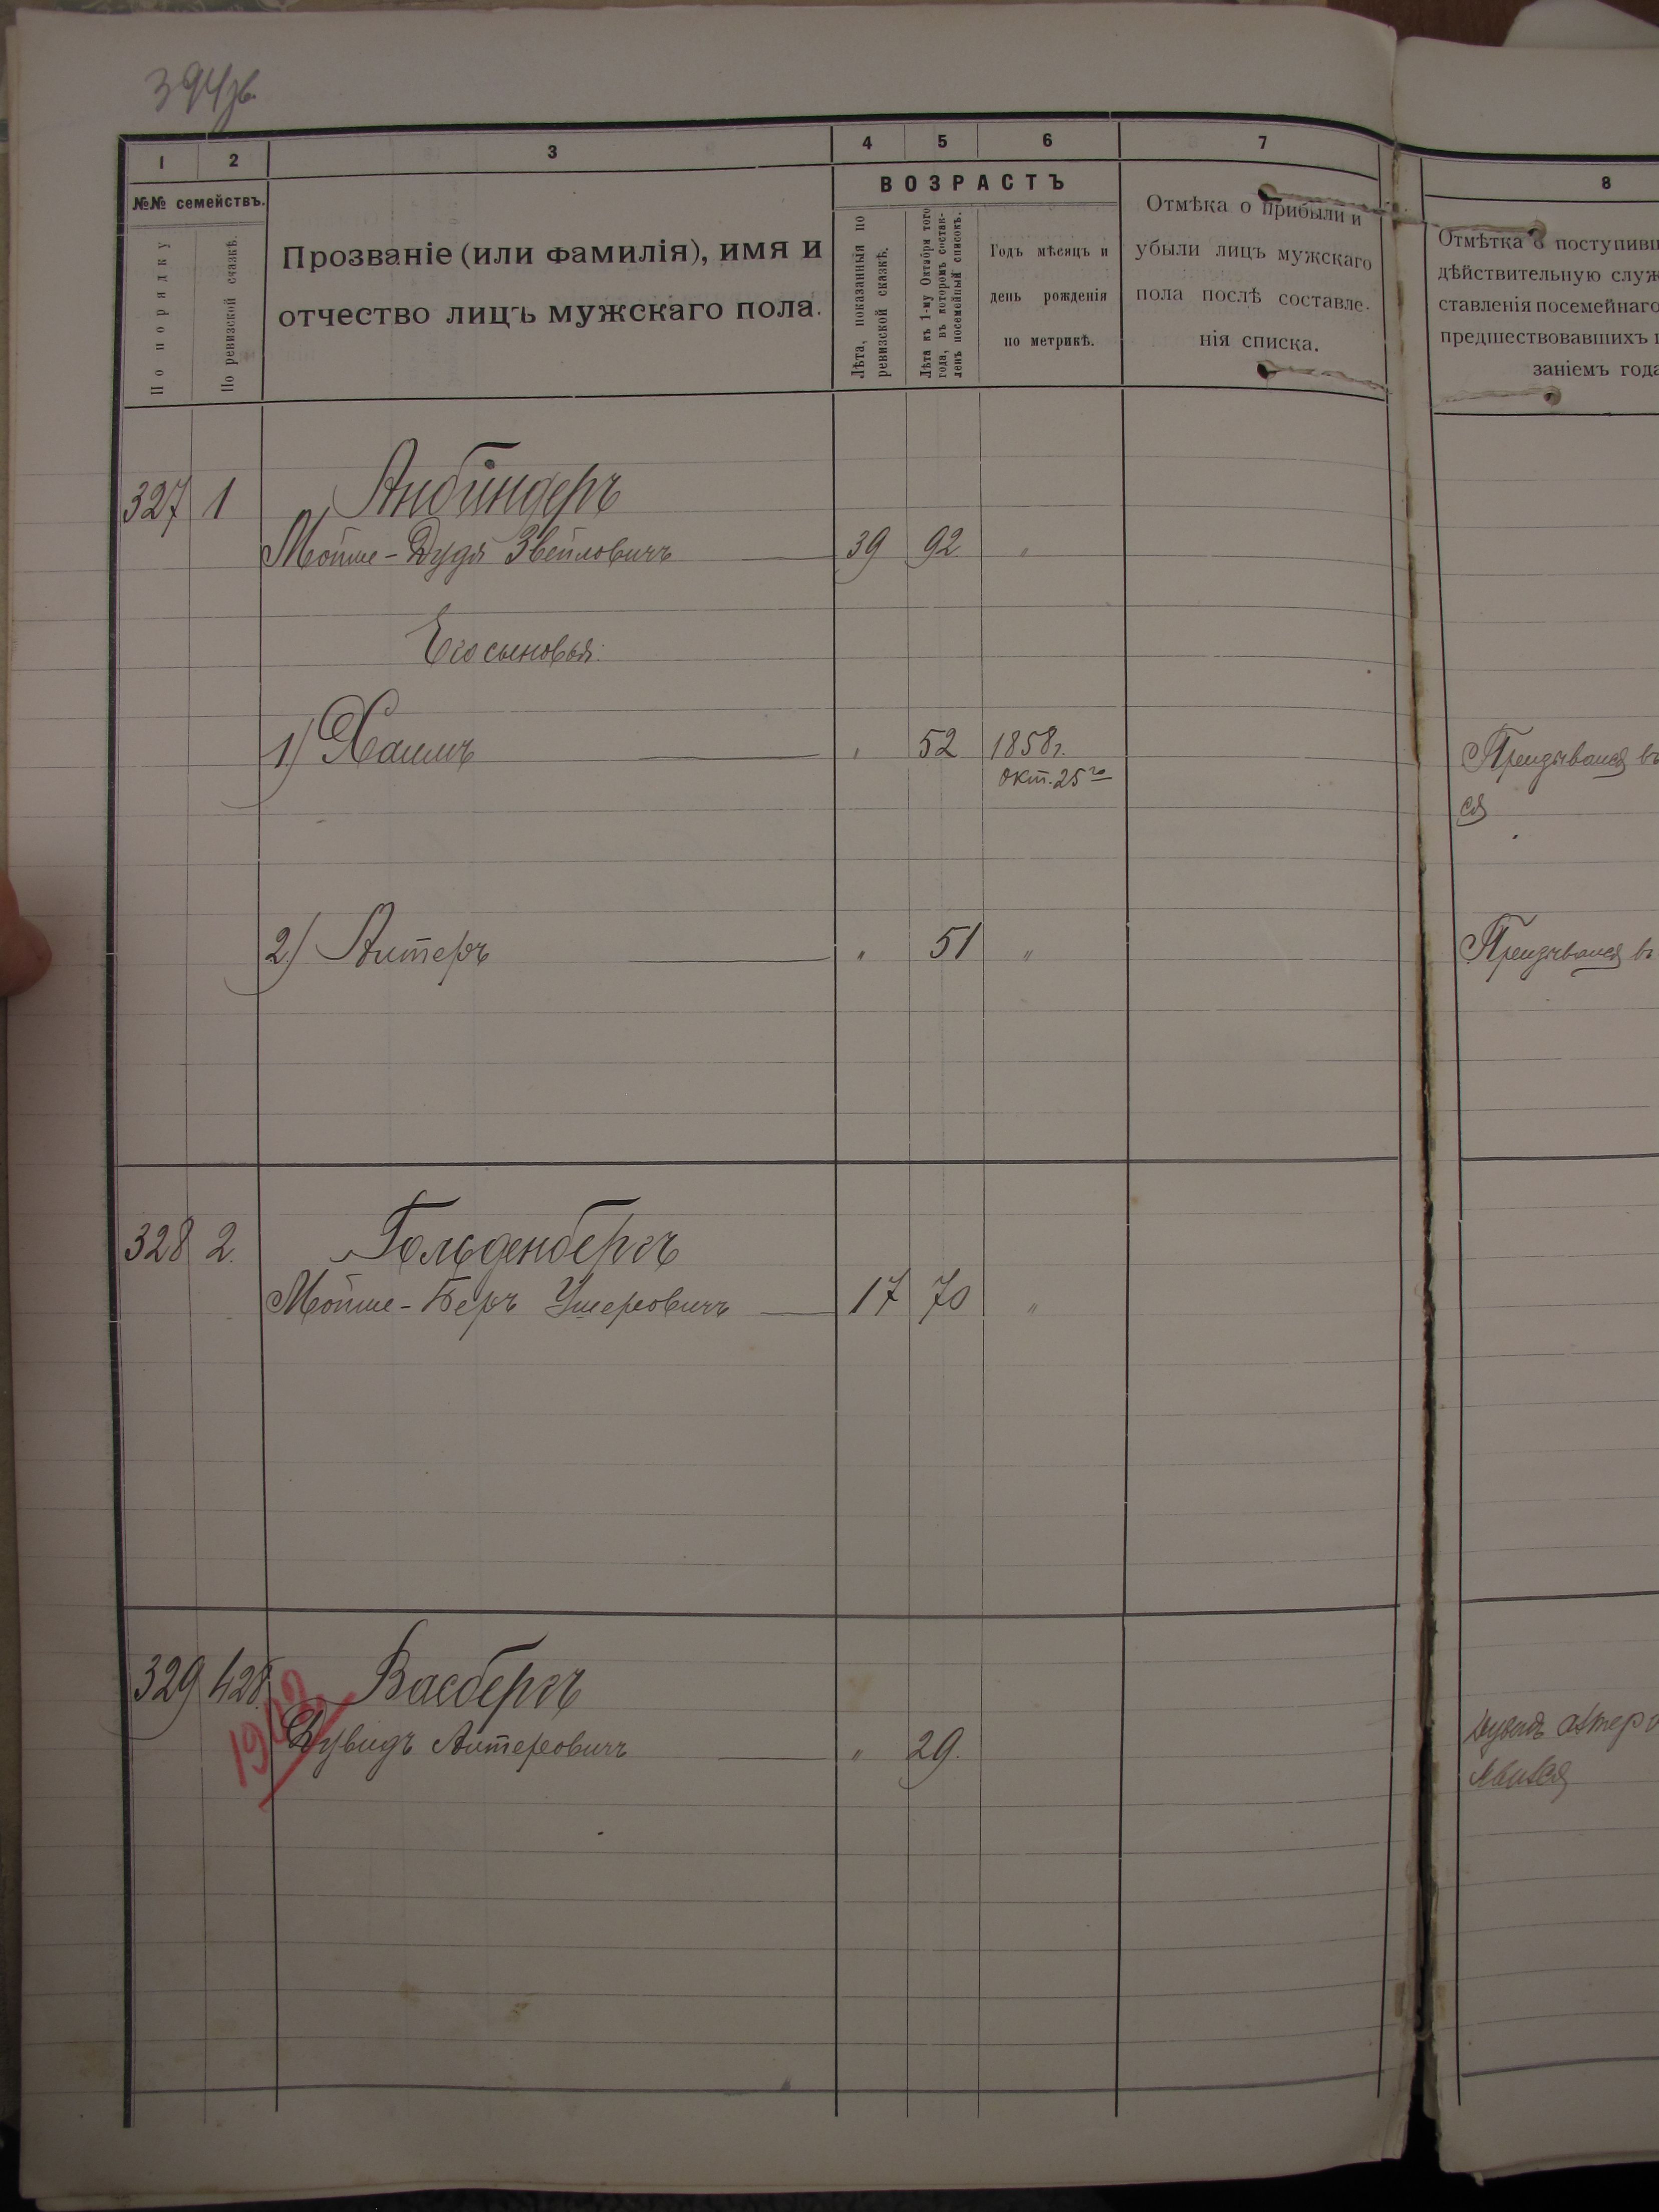 394об.
1 2 3 4 5 6 7 8
№№ семействъ.
По порядку
По ревизской сказкѣ.
Прозваніе (или фамилія), имя и
отчество лицъ мужскаго пола.
ВОЗРАСТЪ
Лѣта, показанныя по
ревизской сказкѣ.
Лѣта къ 1-му Октября того
года, въ которомъ состав-
ленъ посемейный списокъ.
Годъ мѣсяцъ и
день рожденія
по метрикѣ.
Отмѣка о прибыли и
убыли лицъ мужскаго
пола послѣ составле-
нія списка.
Отмѣтка о поступивш
дѣйствительную служ
ставленія посемейнаго
предшествовавшихъ п
заніемъ года
327 1 Анбиндеръ
Мойше-Дудя Звейловичъ 39 92 "
Его сыновья:
1) Хаимъ " 52 1858г.
окт. 25го
Призывался въ
ся
2) Алтеръ " 51 "
Призывался въ
328 2. Гольденбергъ
Мойше-Беръ Ушеровичъ 17 70 "
329 428 Васбергъ
1902
Дувидъ Алтеровичъ " 29.
Дувидъ Алтеро
явился